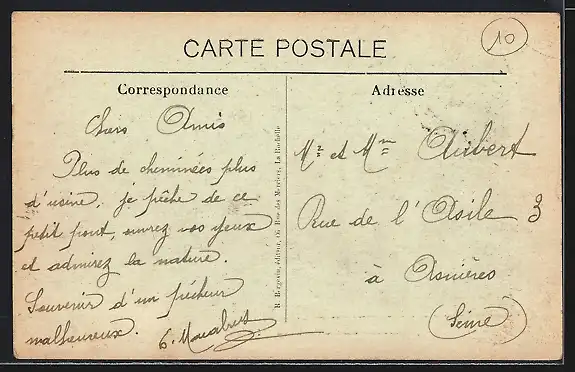 10
CARTE POSTALE
Correspondance
Chers Amis
Plus de cheminées plus
d'usine, je pêche de ce
petit pont, ouvrez vos yeux
et admirez la nature.
Souvenir d'un pêcheur
malheureux.
R. Bergevin, éditeur, Rue des Merciers, La Rochelle
Adresse
Mr et Mme Aubert
Rue de l'Asile 3
à Asnières
(Seine)